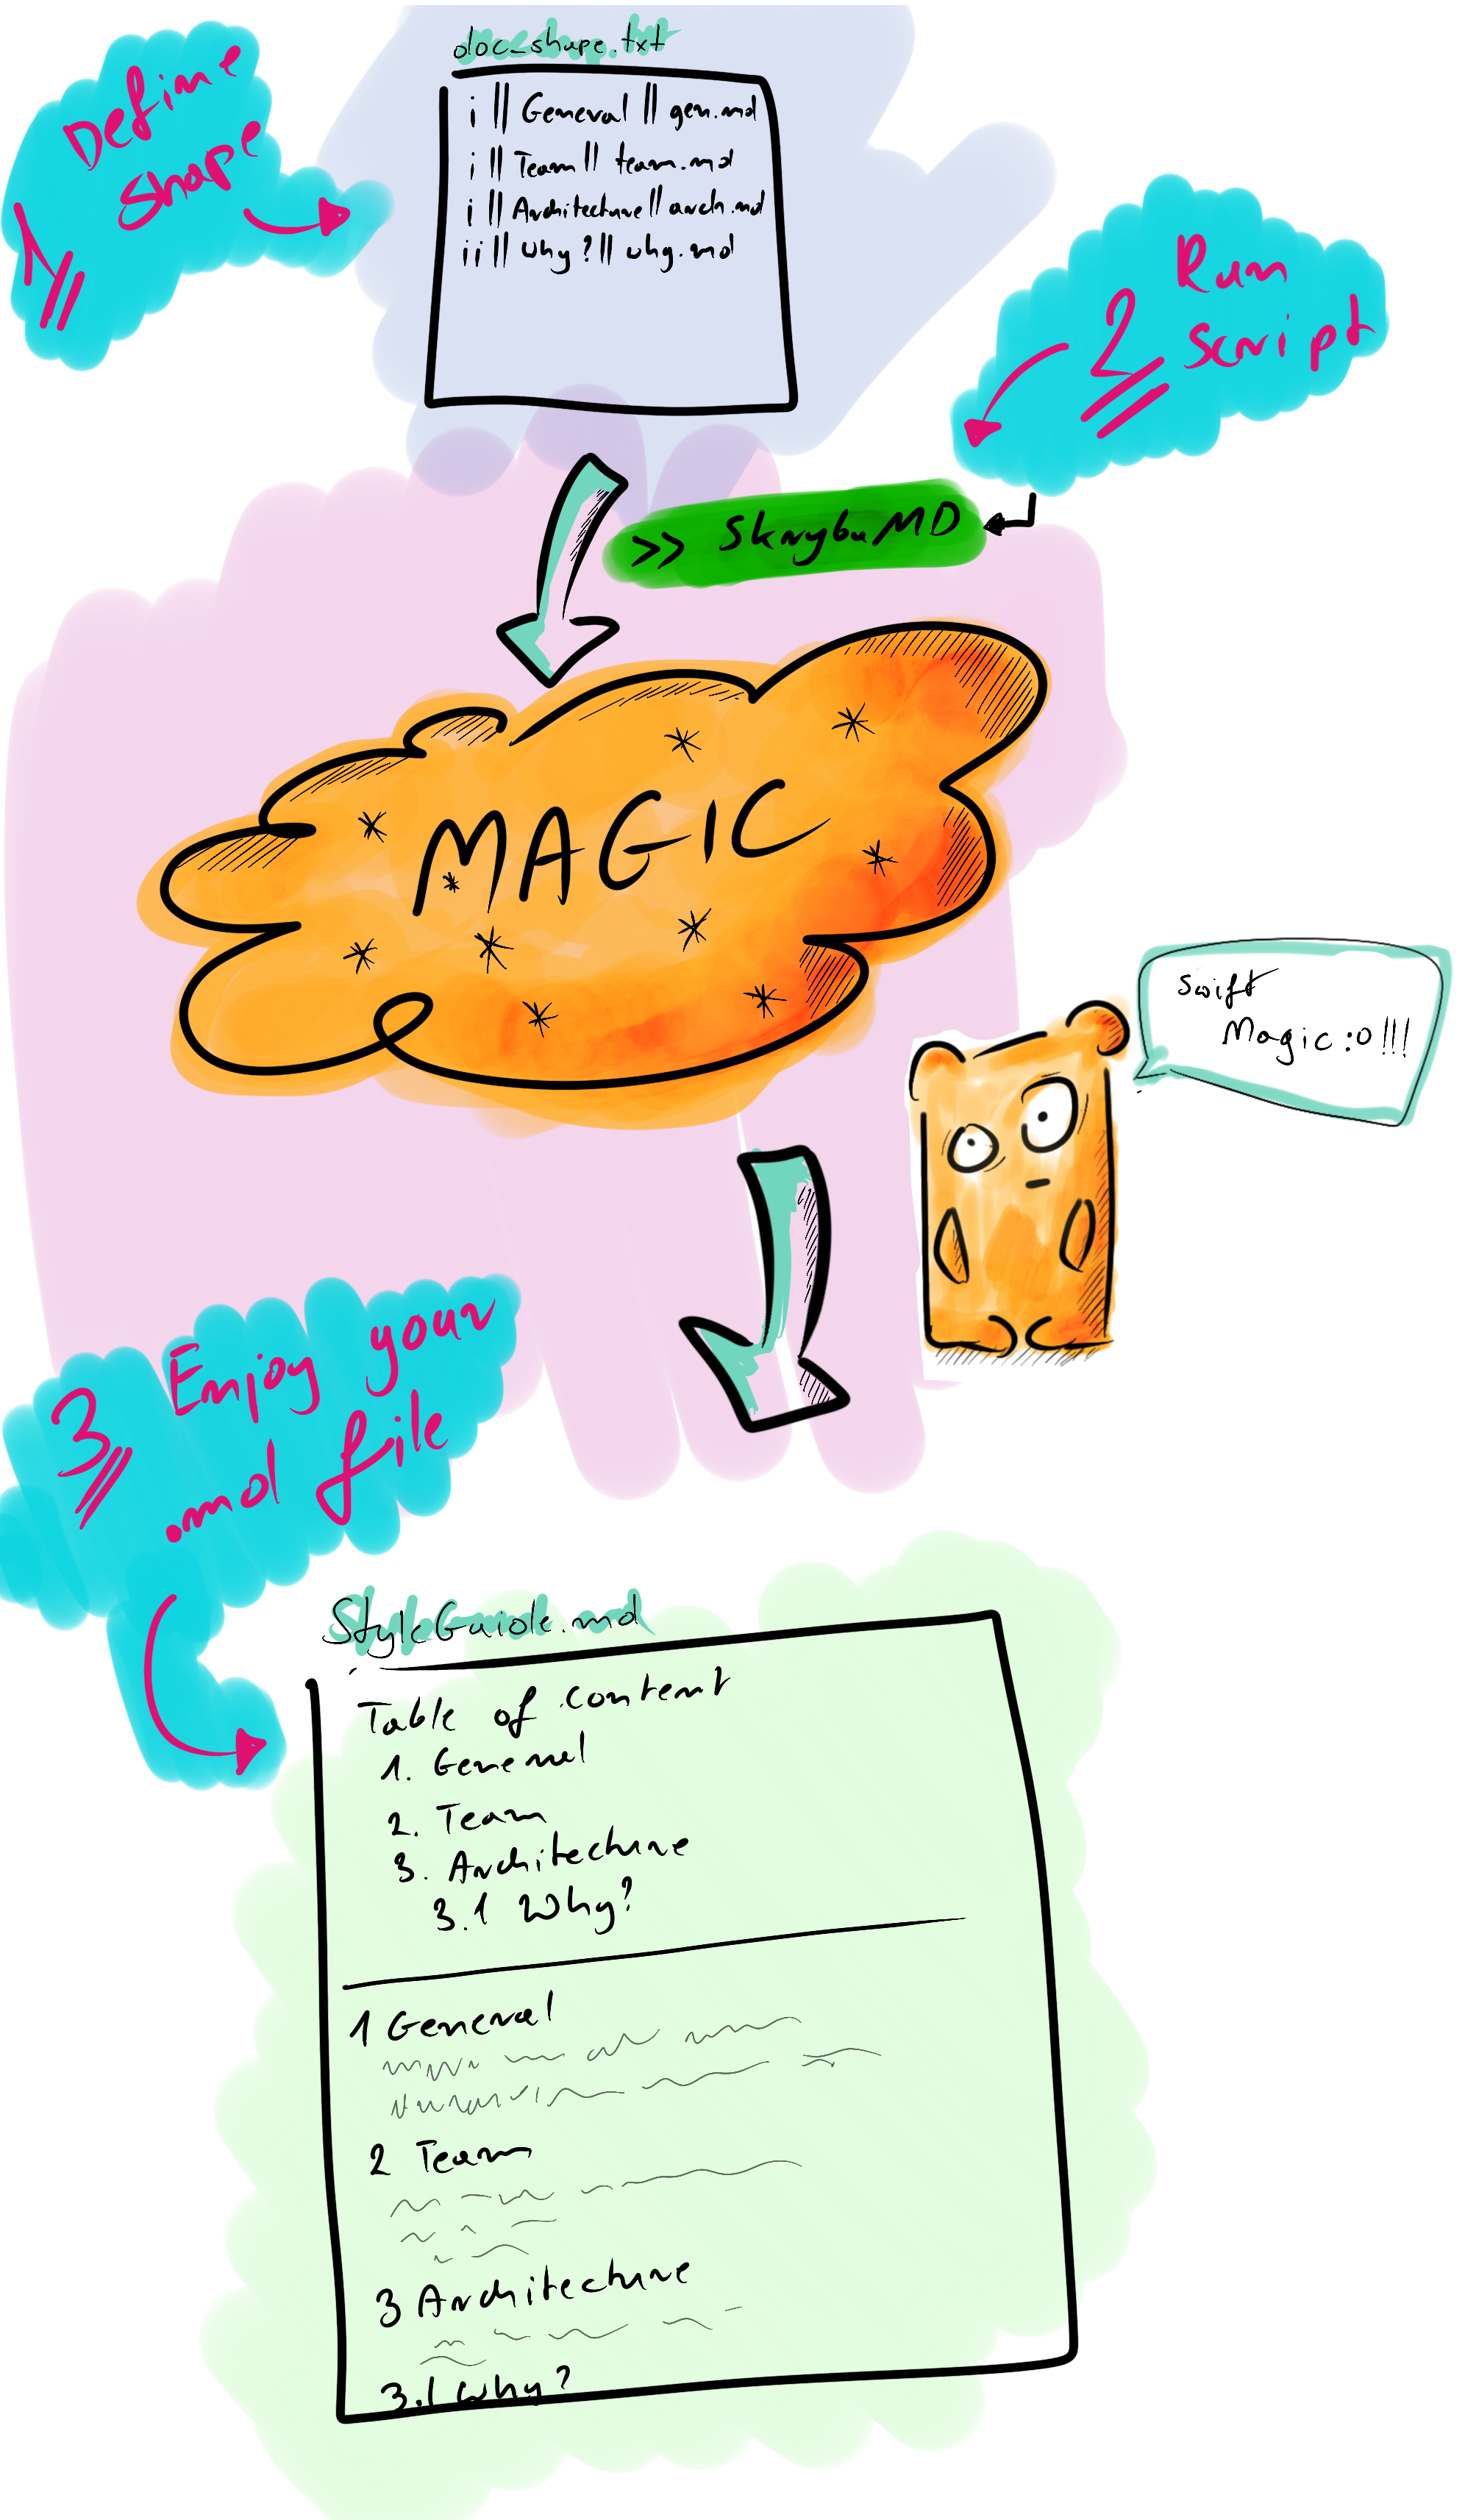 doc_shape.txt
1 Define
shape
i || General || gen.md
i || Team || team.md
i || Architecture || arch.md
ii || Why? || why.md
2 Run
script
>> SkrybuMD
MAGIC
Swift
Magic :O !!!
3 Enjoy your
.md file
StyleGuide.md
Table of content
1. General
2. Team
3. Architecture
3.1 Why?
1 General
2 Team
3 Architecture
3.1 Why?